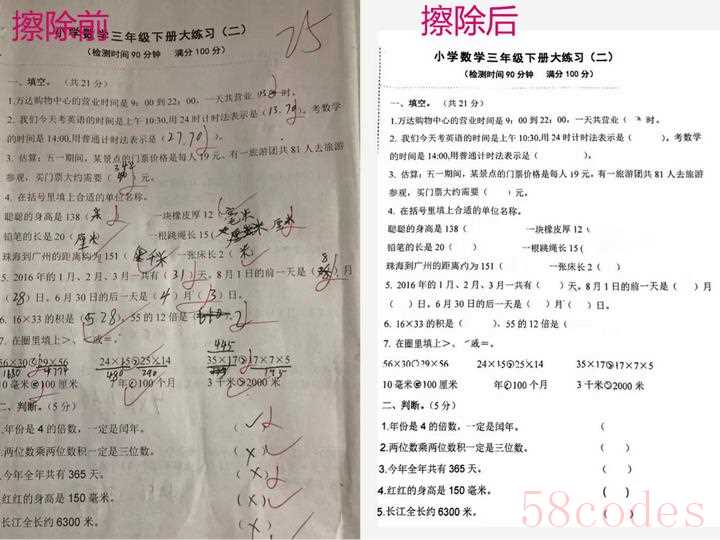 擦除前
小学数学三年级下册大练习（二）
（检测时间90分钟 满分100分）
25
一、填空。（共21分）
1.万达购物中心的营业时间是9：00到22：00，一天共营业（ 时。
2. 我们今天考英语的时间是上午10:30,用24时计时法表示是（13.70），考数学
的时间是14:00,用普通计时法表示是（27.70）。
3. 估算：五一期间，某景点的门票价格是每人19元，有一旅游团共81人去旅游
参观，买门票大约需要（ ）元。
4. 在括号里填上合适的单位名称。
聪聪的身高是138（米 一块橡皮厚12（毫米
铅笔的长是20（厘米 一根跳绳长15（ 厘米
珠海到广州的距离约为151（ 千米 一张床长2（米）
5. 2016年的1月、2月、3月一共有（31）天。8月1日的前一天是（8）月
（28）日。6月30日的后一天是（4）月（3）日。
6. 16×33的积是（528），55的12倍是（ 2
7. 在圈里填上＞、＜或＝。
445
56×30 29×56 24×15 25×14 35×17 17×7×5
1680 4774 480 290 595
10毫米 100厘米 年 100个月 3千米 2000米
二、判断。（5分）
1.年份是4的倍数，一定是闰年。（✓
2.两位数乘两位数积一定是三位数。（×）
3.今年全年共有365天。（×）
4.红红的身高是150毫米。（×）
5.长江全长约6300米。（×）
擦除后
小学数学三年级下册大练习（二）
（检测时间90分钟 满分100分）
一、填空。（共21分）
1.万达购物中心的营业时间是9：00到22：00，一天共营业（ 时。
2. 我们今天考英语的时间是上午10:30,用24时计时法表示是（ ）。考数学
的时间是14:00,用普通计时法表示是（ ）。
3. 估算：五一期间，某景点的门票价格是每人19元，有一旅游团共81人去旅游
参观，买门票大约需要（ ）元。
4. 在括号里填上合适的单位名称。
聪聪的身高是138（ 一块橡皮厚12（
铅笔的长是20（ ） 一根跳绳长15（
珠海到广州的距离约为151（ 一张床长2（ ）
5. 2016年的1月、2月、3月一共有（ ）天。8月1日的前一天是（ ）月
（ ）日。6月30日的后一天是（ ）月（ ）日。
6. 16×33的积是（ ）、55的12倍是（
7. 在圈里填上＞、＜或＝。
56×30 29×56 24×15 25×14 35×17 17×7×5
10毫米 100厘米 年 100个月 3千米 2000米
二、判断。（5分）
1.年份是4的倍数，一定是闰年。（
2.两位数乘两位数积一定是三位数。（ ）
3.今年全年共有365天。（ ）
4.红红的身高是150毫米。（ ）
5.长江全长约6300米。（ ）
58codes